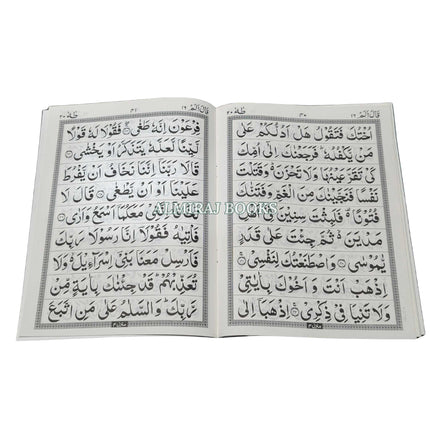 قَالَ اَلَمْ ١٦ طٰهٰ ٢٠
اُخْتُكَ فَتَقُوْلُ هَلْ اَدُلُّكُمْ عَلٰى
مَنْ يَّكْفُلُهٗ فَرَجَعْنٰكَ اِلٰٓى اُمِّكَ
كَيْ تَقَرَّ عَيْنُهَا وَلَا تَحْزَنَ وَقَتَلْتَ
نَفْسًا فَنَجَّيْنٰكَ مِنَ الْغَمِّ وَفَتَنّٰكَ
فُتُوْنًا فَلَبِثْتَ سِنِيْنَ فِيْٓ اَهْلِ
مَدْيَنَ ثُمَّ جِئْتَ عَلٰى قَدَرٍ
يّٰمُوْسٰى وَاصْطَنَعْتُكَ لِنَفْسِيْ
اِذْهَبْ اَنْتَ وَاَخُوْكَ بِاٰيٰتِيْ
وَلَا تَنِيَا فِيْ ذِكْرِيْ اِذْهَبَآ اِلٰى
قَالَ اَلَمْ ١٦ طٰهٰ ٢٠
فِرْعَوْنَ اِنَّهٗ طَغٰى فَقُوْلَا لَهٗ قَوْلًا
لَّيِّنًا لَّعَلَّهٗ يَتَذَكَّرُ اَوْ يَخْشٰى
قَالَا رَبَّنَآ اِنَّنَا نَخَافُ اَنْ يَّفْرُطَ
عَلَيْنَآ اَوْ اَنْ يَّطْغٰى قَالَ لَا
تَخَافَآ اِنَّنِيْ مَعَكُمَآ اَسْمَعُ وَاَرٰى
فَاْتِيٰهُ فَقُوْلَآ اِنَّا رَسُوْلَا رَبِّكَ
فَاَرْسِلْ مَعَنَا بَنِيْٓ اِسْرَآءِيْلَ وَلَا
تُعَذِّبْهُمْ قَدْ جِئْنٰكَ بِاٰيَةٍ مِّنْ
رَّبِّكَ وَالسَّلٰمُ عَلٰى مَنِ اتَّبَعَ
ALMIRAJ BOOKS